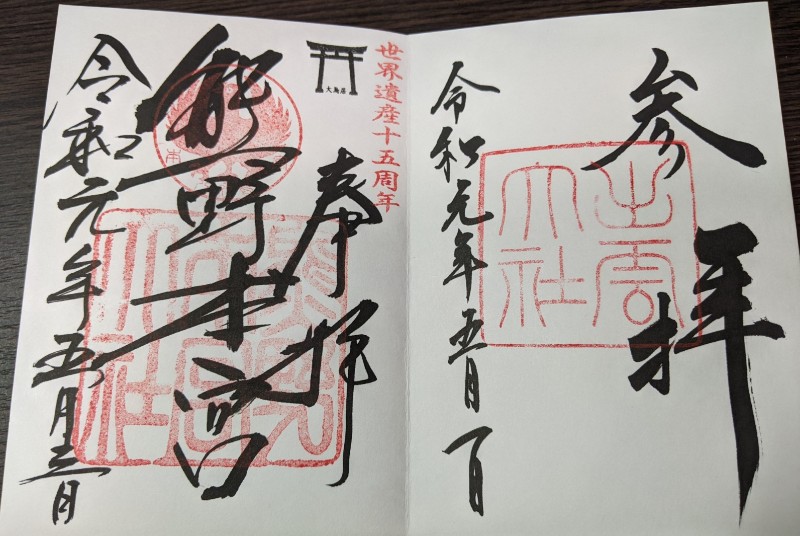 参拝
出雲
大社
令和元年五月一日
世界遺産十五周年
大鳥居
奉拝
熊野本宮
熊野
本宮
大社
令和元年五月三日